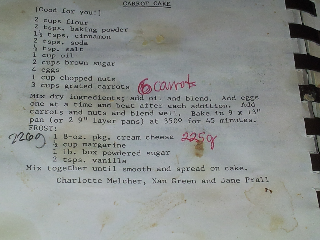 CARROT CAKE
(Good for you!)
2 cups flour
2 tsps. baking powder
1½ tsps. cinnamon
2 tsps. soda
1 tsp. salt
1 cup oil
2 cups brown sugar
4 eggs
1 cup chopped nuts
3 cups grated carrots 6 carrots
Mix dry ingredients; add oil and blend. Add eggs
one at a time and beat after each addition. Add
carrots and nuts and blend well. Bake in 9 x 13"
pan (or 2 9" layer pans) at 350º for 45 minutes.
FROST:
1 8-oz. pkg. cream cheese 225g
½ cup margarine
1 lb. box powdered sugar
2 tsps. vanilla
Mix together until smooth and spread on cake.
Charlotte Melcher, Nan Green and Jane Prall